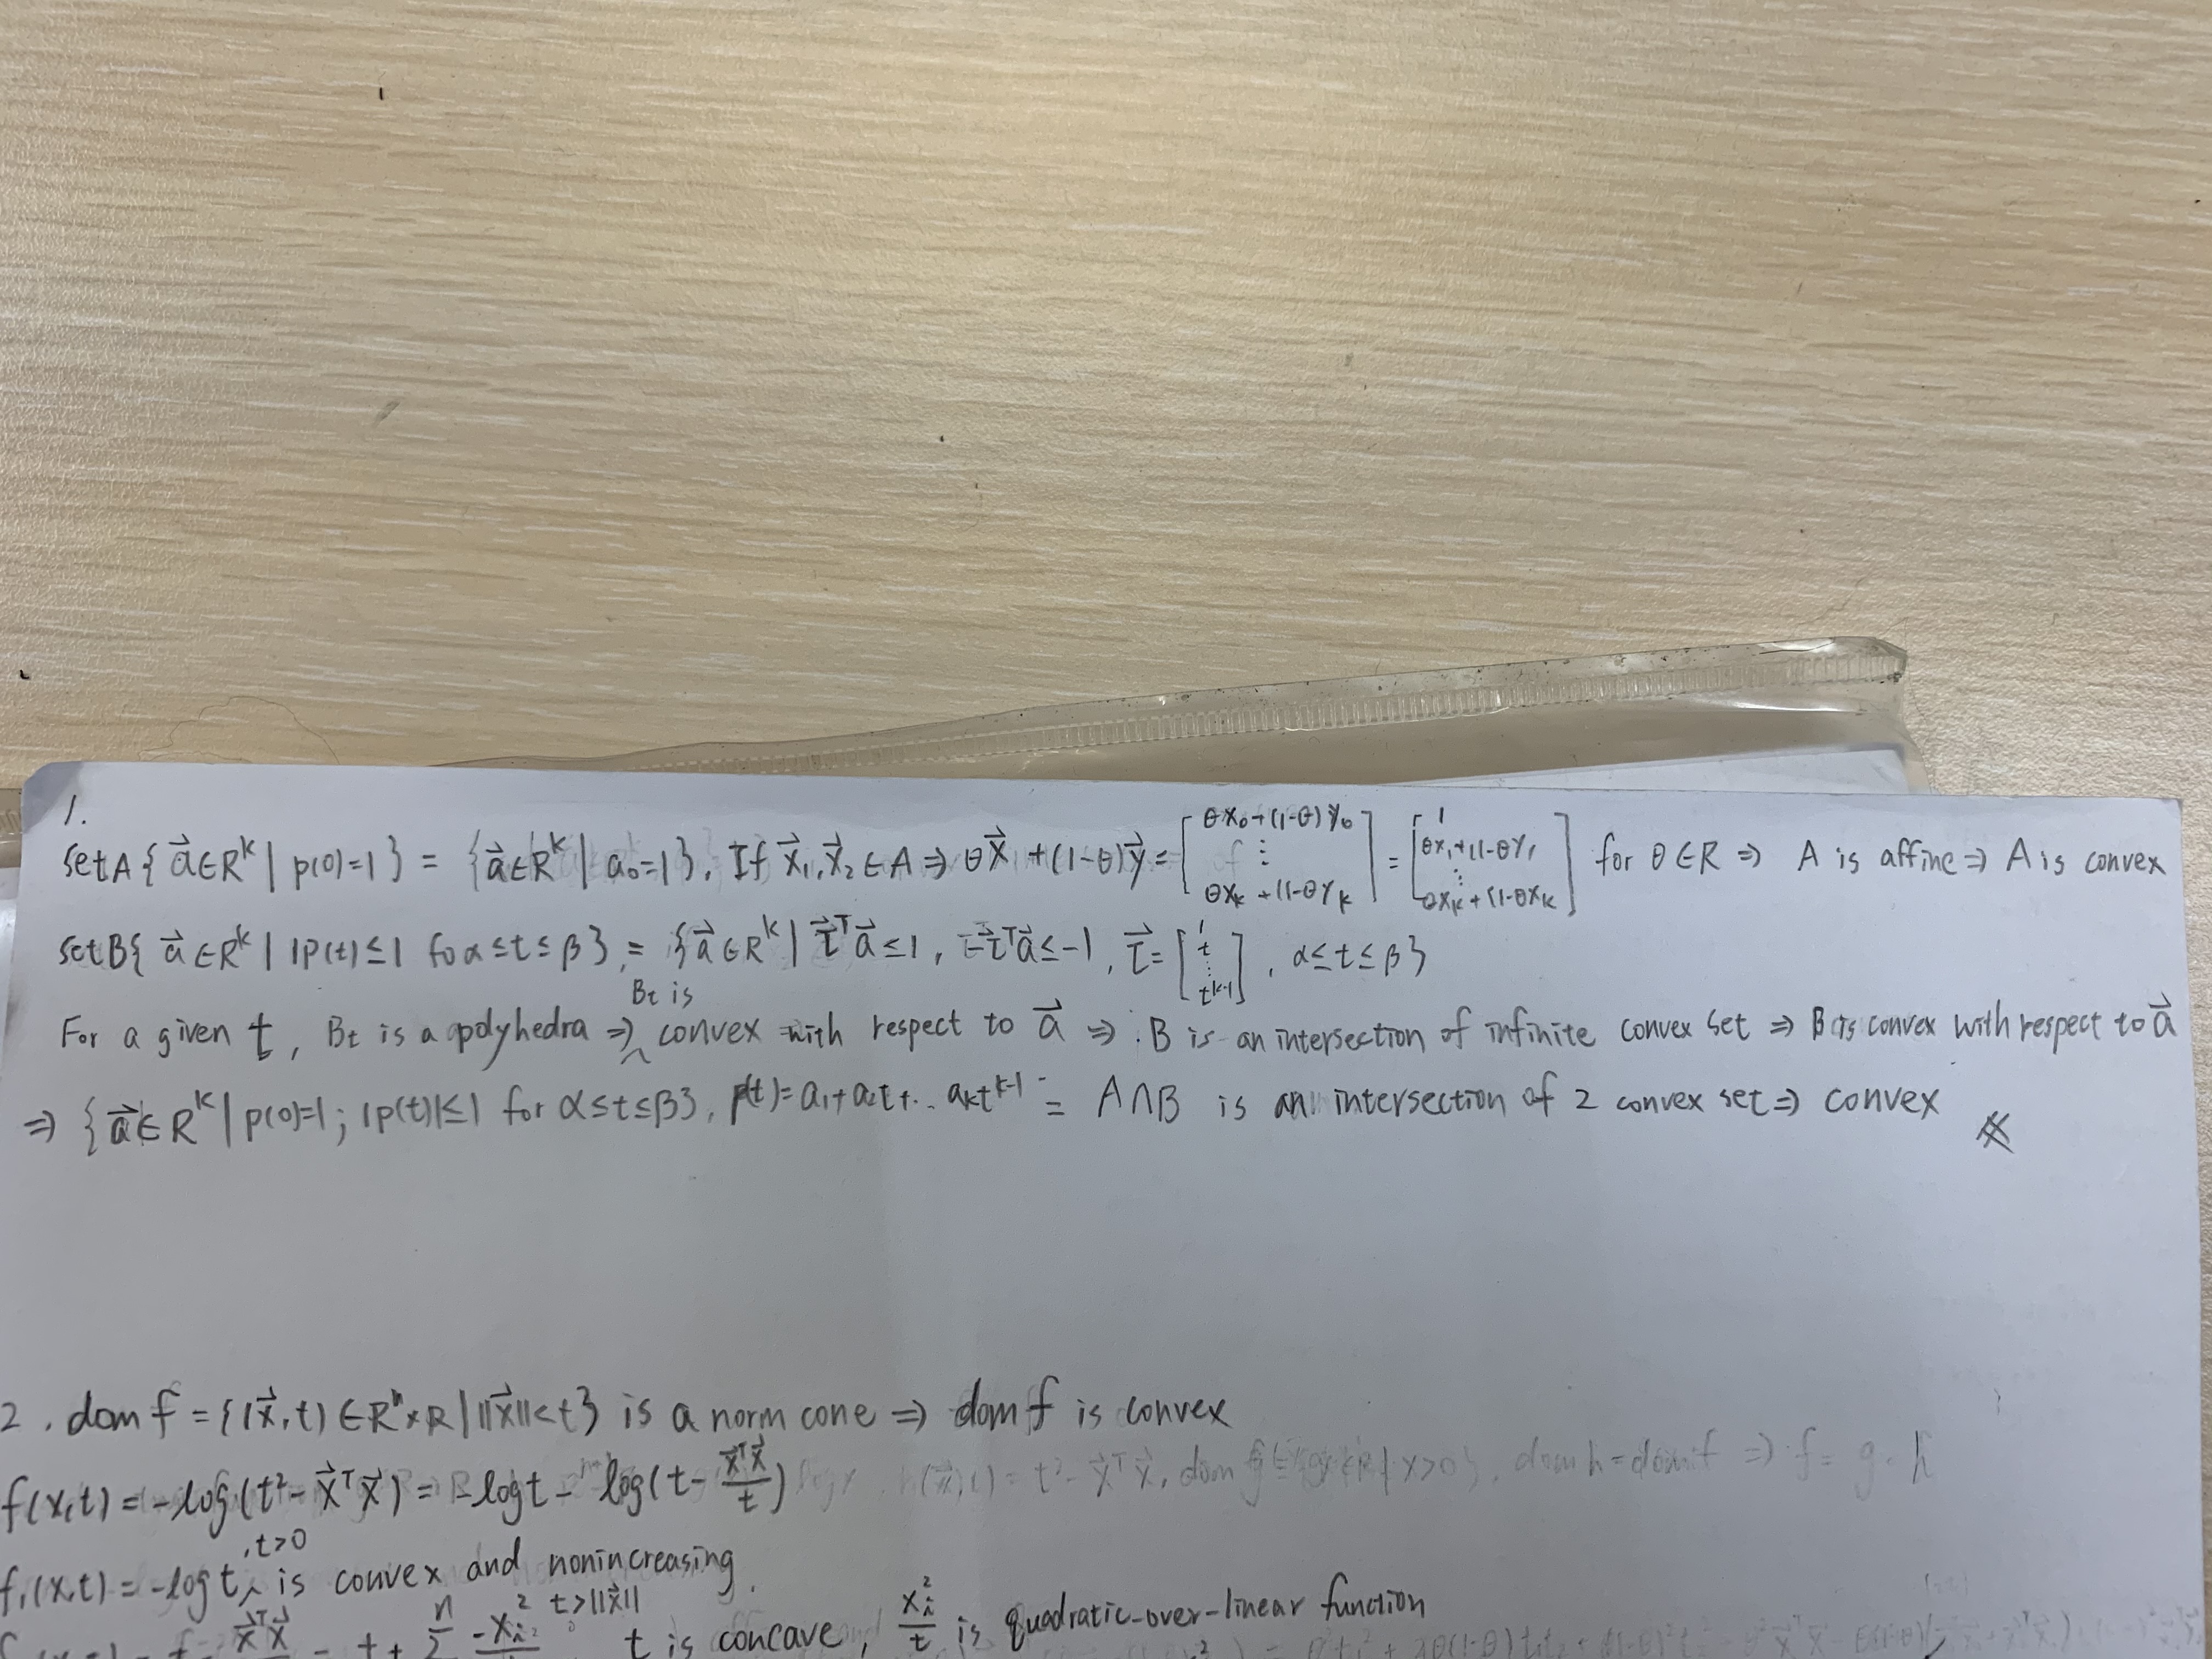 1.
set A { a⃗∈R^k | p(0)=1 } = { a⃗∈R^k | a₀=1 }. If x⃗₁, x⃗₂ ∈ A ⇒ θx⃗₁+(1-θ)y⃗ = [θx₀+(1-θ)y₀ ⋮ θx_k+(1-θ)y_k] = [1 θx₁+(1-θ)y₁ ⋮ θx_k+(1-θ)x_k] for θ∈R ⇒ A is affine ⇒ A is convex
set B{ a⃗∈R^k | |p(t)≤1 for α≤t≤β } = { a⃗∈R^k | t⃗ᵀa⃗≤1, -t⃗ᵀa⃗≤-1, t⃗=[1 t ⋮ t^{k-1}], α≤t≤β }
For a given t, B_t is a polyhedra ⇒ B_t is convex with respect to a⃗ ⇒ B is an intersection of infinite convex set ⇒ B is convex with respect to a⃗
⇒ { a⃗∈R^k | p(0)=1; |p(t)|≤1 for α≤t≤β }, p(t)=a₁+a₂t+.. a_kt^{k-1} = A∩B is an intersection of 2 convex set ⇒ convex
2. dom f = {(x⃗,t)∈R^n×R | ||x⃗||<t} is a norm cone ⇒ dom f is convex
f(x,t) = -log(t²-x⃗ᵀx⃗) = -log t - log(t - x⃗ᵀx⃗/t)
f₁(x,t) = -log t, t>0 is convex and nonincreasing.
t is concave, x_i²/t is quadratic-over-linear function